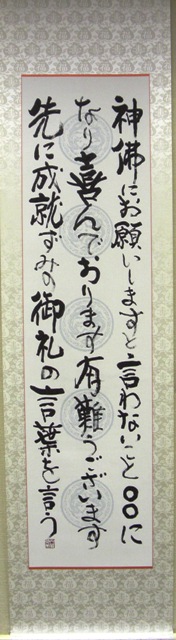 神佛にお願いしますと言わないこと〇〇に
なり喜んでおります有難うございます
先に成就ずみの御礼の言葉を言う